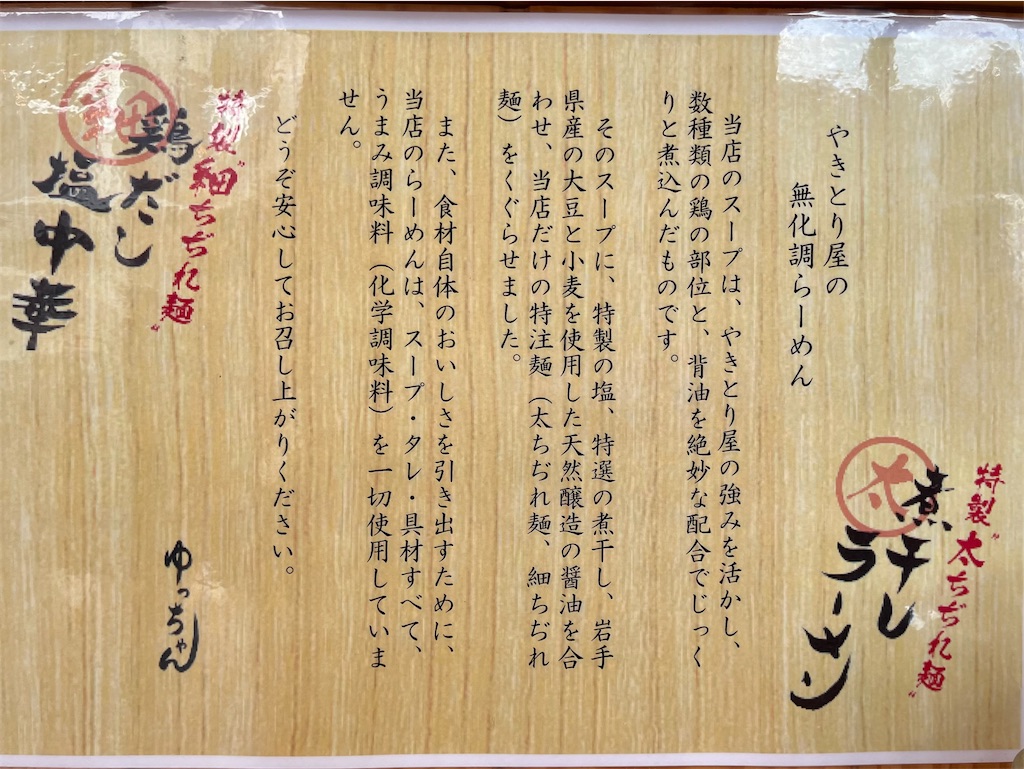 特製〝太ちぢれ麺〟
太
煮干し
ラーメン
やきとり屋の
無化調らーめん
当店のスープは、やきとり屋の強みを活かし、
数種類の鶏の部位と、背油を絶妙な配合でじっく
りと煮込んだものです。
そのスープに、特製の塩、特選の煮干し、岩手
県産の大豆と小麦を使用した天然醸造の醤油を合
わせ、当店だけの特注麺（太ちぢれ麺、細ちぢれ
麺）をくぐらせました。
また、食材自体のおいしさを引き出すために、
当店のらーめんは、スープ・タレ・具材すべて、
うまみ調味料（化学調味料）を一切使用していま
せん。
どうぞ安心してお召し上がりください。
ゆっちゃん
特製〝細ちぢれ麺〟
細
鶏だし
塩中華